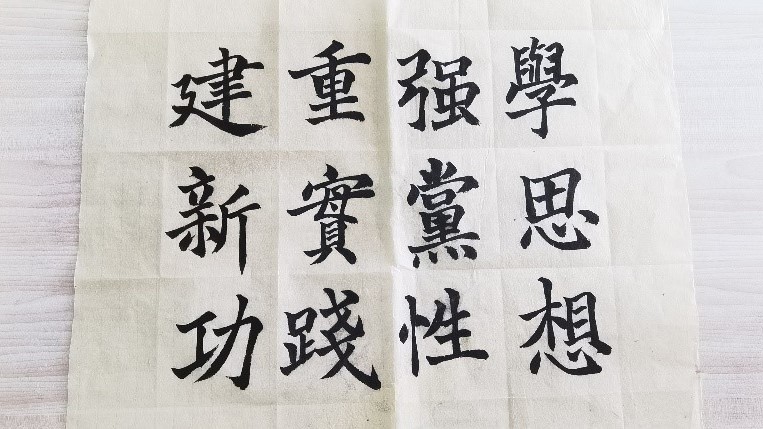 學思想
强黨性
重實踐
建新功